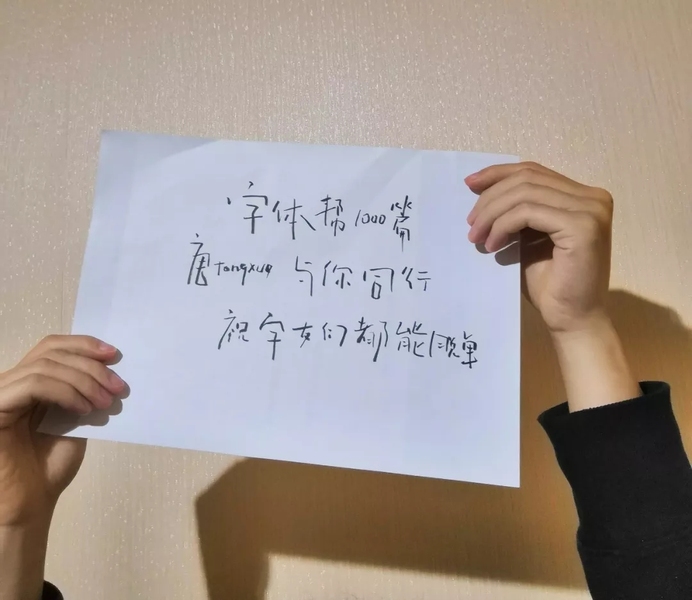 字体帮1000篇
唐tongxue与你同行
祝字友们都能脱单